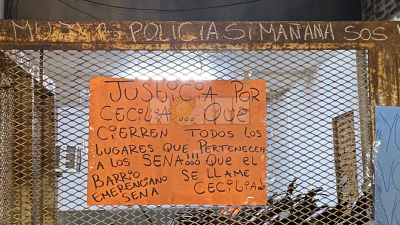 POLICIA SI MAÑANA SOS
JUSTICIA POR
CECILIA... QUE
CIERREN TODOS LOS
LUGARES QUE PERTENECEN
A LOS SENA!!! QUE EL
BARRIO SE LLAME
EMERENCIANO CECILIA
SENA